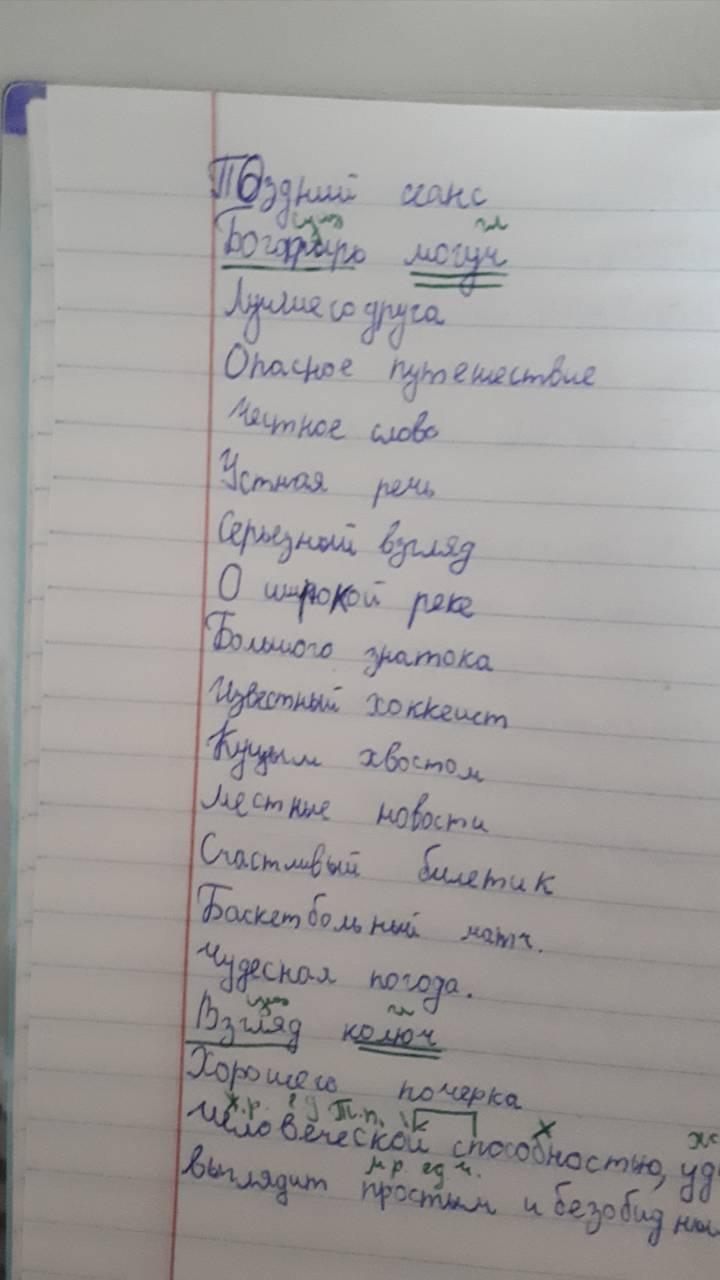 Поздний сеанс
сущ гл
Богатырь могуч
Лучшего друга
Опасное путешествие
Честное слово
Устная речь
Серьезный взгляд
О широкой реке
Большого знатока
Известный хоккеист
Куцым хвостом
Местные новости
Счастливый билетик
Баскетбольный матч.
Чудесная погода.
сущ гл
Взгляд колюч
Хорошего почерка
ж.р. ед Т.п.
человеческой способностью, уд
м.р. ед ч.
выглядит простым и безобидным